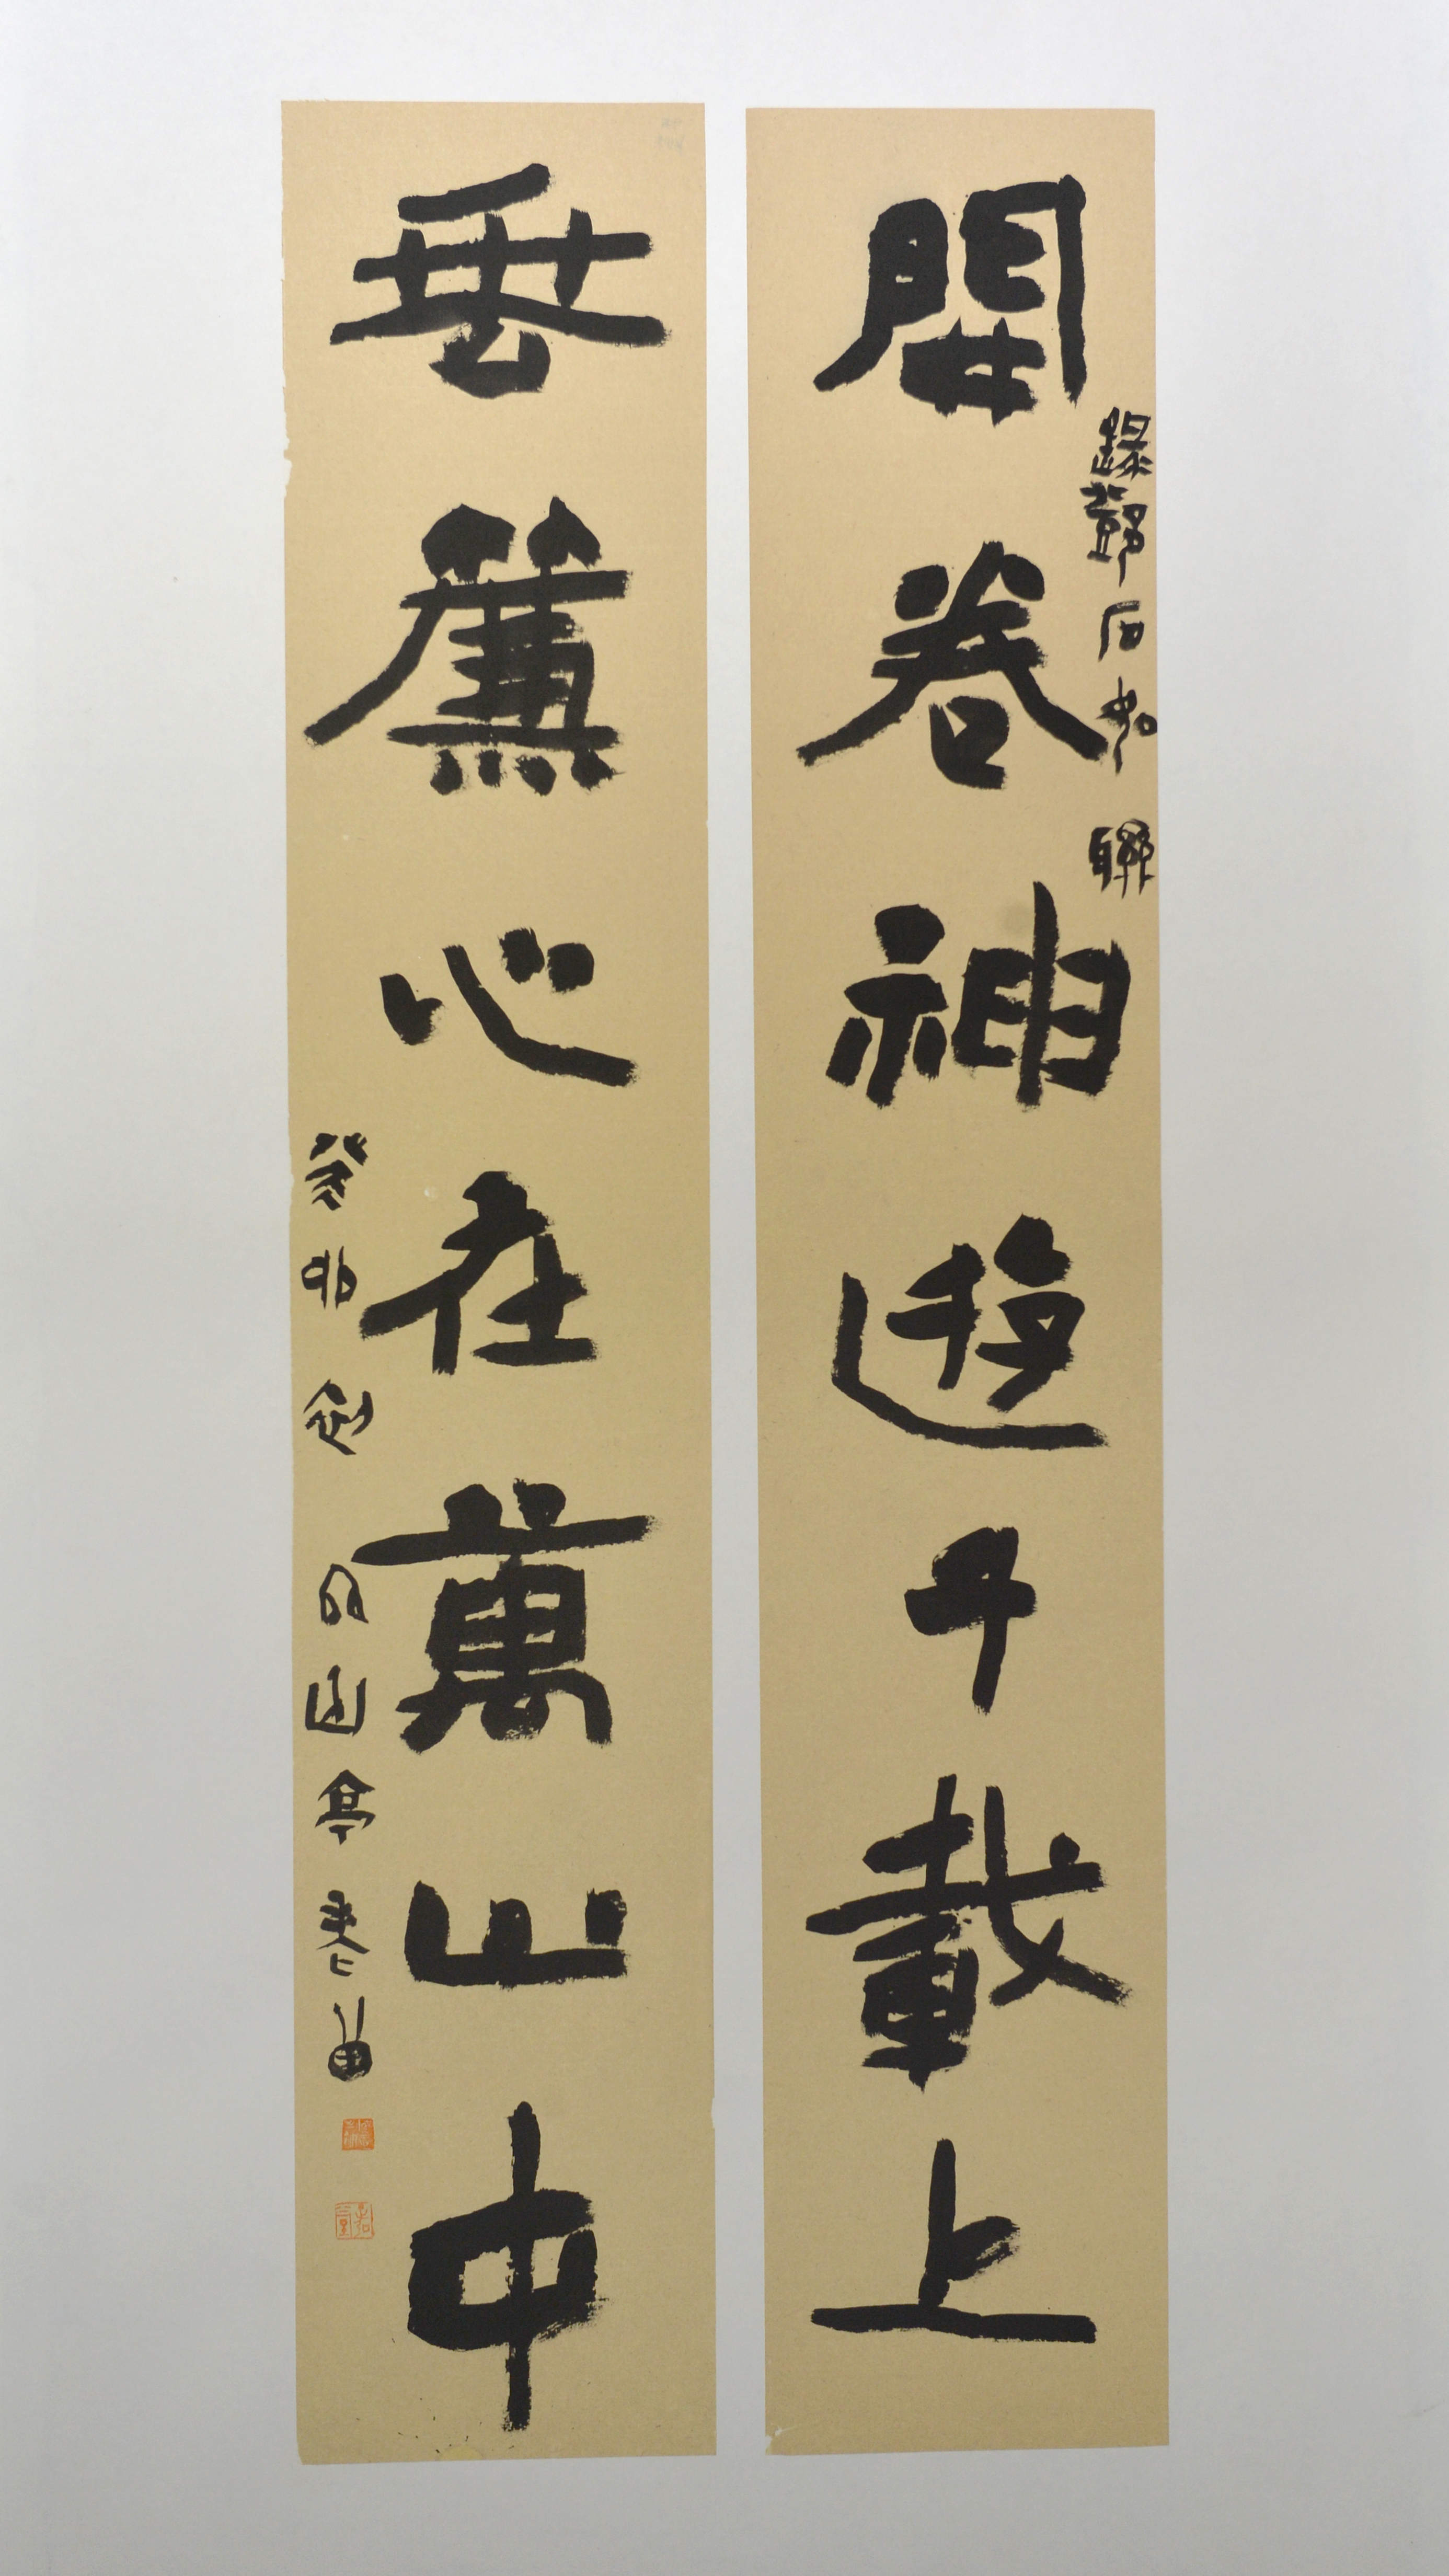 開卷神遊千載上
錄鄧石如聯
垂簾心在萬山中
癸卯
山亭